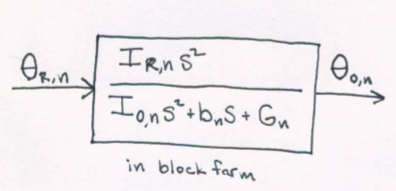 θR,n
IR,n s²
Io,n s² + bn s + Gn
θo,n
in block form